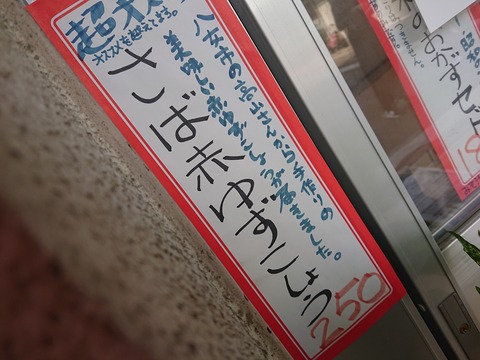 超オス
オススメを超えてます。
八女市の高山さんから手作りの
美味しい赤ゆずこしょうが届きました。
さば赤ゆずこしょう
250
のおかずセット
18